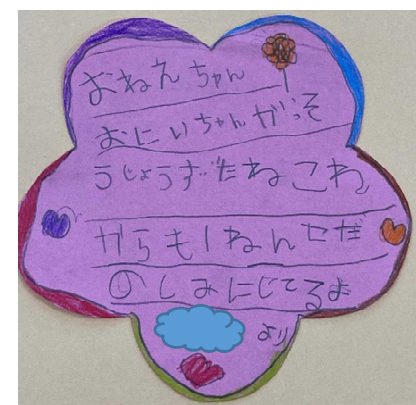 おねえちゃん
おにいちゃんがっそ
うじょうずだねこれ
からも1ねんセだ
のしみにじてるよ
より